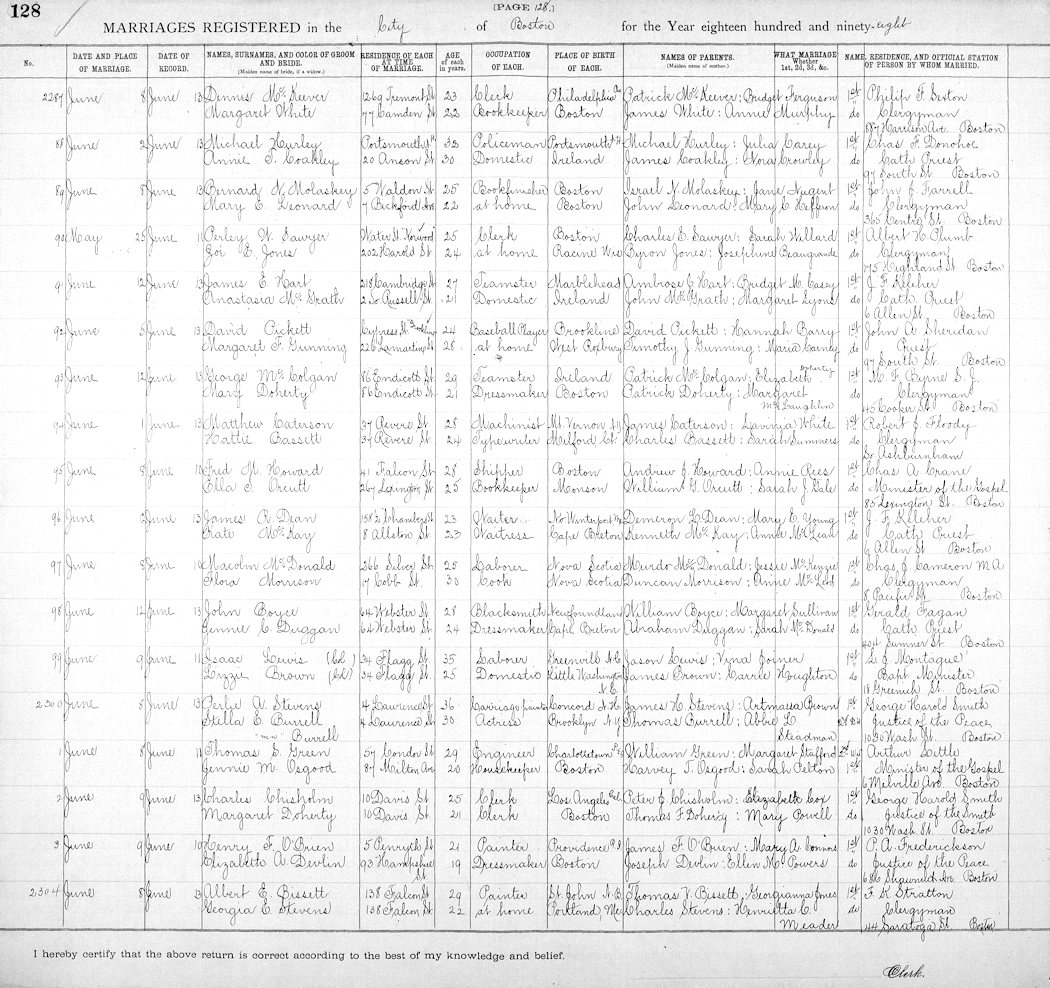 128
[PAGE 128.]
MARRIAGES REGISTERED in the City of Boston for the Year eighteen hundred and ninety-eight
No. DATE AND PLACE OF MARRIAGE. DATE OF RECORD. NAMES, SURNAMES, AND COLOR OF GROOM AND BRIDE. (Maiden name of bride, if a widow.) RESIDENCE OF EACH AT TIME OF MARRIAGE. AGE of each in years. OCCUPATION OF EACH. PLACE OF BIRTH OF EACH. NAMES OF PARENTS. (Maiden name of mother.) WHAT MARRIAGE Whether 1st, 2d, 3d, &c. NAME, RESIDENCE, AND OFFICIAL STATION OF PERSON BY WHOM MARRIED.
2287 June 8 June 13 Dennis McKeever 1269 Tremont St 23 Clerk Philadelphia Pa Patrick McKeever: Bridget Ferguson 1st Philip F. Sexton
Margaret White 77 Camden St 22 Bookkeeper Boston James White: Annie Murphy do Clergyman
887 Harrison Ave. Boston
88 June 2 June 13 Michael Hurley Portsmouth N.H. 32 Policeman Portsmouth N.H. Michael Hurley: Julia Carey 1st Chas F. Donohoe
Annie T. Coakley 20 Anson St 30 Domestic Ireland James Coakley: Nora Crowley do Cath Priest
97 South St Boston
89 June 8 June 13 Bernard N. Molaskey 5 Waldon St 25 Bookfinisher Boston Israel N. Molaskey: Jane Nugent 1st John J. Farrell
Mary E. Leonard 7 Bickford Ave 22 at home Boston John Leonard: Mary C. Heffron do Clergyman
365 Centre St. Boston
90 May 25 June 11 Perley W. Sawyer Water St. Norwood 25 Clerk Boston Charles E. Sawyer: Sarah Willard 1st Albert H. Plumb
Zoe E. Jones 202 Harold St 24 at home Racine Wis Byron Jones: Josephine Beaugrande do Clergyman
175 Highland St Boston
91 June 12 June 13 James E. Hart 218 Cambridge St 27 Teamster Marblehead Ambrose C. Hart: Bridget M. Casey 1st J. F. Kelcher
Anastasia McGrath 2 So Russell St. 21 Domestic Ireland John McGrath: Margaret Lyons do Cath. Priest
6 Allen St. Boston
92 June 5 June 13 David Pickett Cypress St. Brookline 24 Baseball Player Brookline David Pickett: Hannah Barry 1st John A. Sheridan
Margaret F. Gunning 226 Lamartine St 28 at home West Roxbury Timothy J. Gunning: Maria Carney do Priest
97 South St. Boston
93 June 12 June 13 George McColgan 86 Endicott St. 29 Teamster Ireland Patrick McColgan: Elizabeth Doherty 1st M. F. Byrne S.J.
Mary Doherty 86 Endicott St. 21 Dressmaker Boston Patrick Doherty: Margaret McLaughlin do Clergyman
45 Cooper St Boston
94 June 1 June 13 Matthew Caterson 37 Revere St. 28 Machinist Mt. Vernon N.Y. James Caterson: Lavinia White 1st Robert J. Floody
Hattie Bassett 37 Revere St. 24 Typewriter Milford Ct. Charles Bassett: Sarah Summers do Clergyman
So Ashburnham
95 June 8 June 10 Fred M. Howard 41 Falcon St. 28 Shipper Boston Andrew J. Howard: Annie Rees 1st Chas A. Crane
Ella I. Orcutt 267 Lexington St. 25 Bookkeeper Monson William G. Orcutt: Sarah J. Gale do Minister of the Gospel
85 Lexington St. Boston
96 June 2 June 13 James R. Dean 158 Chambers St 23 Waiter No Winterport Me Demeron L. Dean: Mary E. Young 1st J. F. Kelcher
Kate McKay 8 Allston St. 23 Waitress Cape Breton Kenneth McKay: Annie McLean do Cath Priest
6 Allen St Boston
97 June 8 June 10 Malcolm McDonald 266 Silver St. 25 Laborer Nova Scotia Murdo McDonald: Jessie McKenzie 1st Chas. J. Cameron M.A.
Flora Morrison 17 Cobb St 30 Cook Nova Scotia Duncan Morrison: Anne McLeod do Clergyman
8 Pacific St. Boston
98 June 12 June 13 John Boyce 64 Webster St. 28 Blacksmith Newfoundland William Boyce: Margaret Sullivan 1st Gerald Fagan
Jennie C. Duggan 64 Webster St. 24 Dressmaker Cape Breton Abraham Duggan: Sarah McDonald do Cath. Priest
404 Sumner St. Boston
99 June 9 June 11 Isaac Lewis (Col) 34 Flagg St. 35 Laborer Greenvill N.C. Jason Lewis: Vina Joiner 1st L. J. Montague
Lizzie Brown (Col) 34 Flagg St. 25 Domestic Little Washington N.C. James Brown: Carrie Houghton do Bapt Minister
18 Greenwich St. Boston
2300 June 8 June 13 Perlie A. Stevens 4 Lawrence St 36 Carriage painter Concord N.H. James H. Stevens: Artmassa Brown George Harold Smith
Stella E. Burrell 4 Lawrence St. 30 Actress Brooklyn N.Y. Thomas Burrell: Abbie L. Steadman Justice of the Peace
Burrell 1030 Wash St. Boston
1 June 8 June 11 Thomas S. Green 57 Condor St. 29 Engineer Charlottetown P.E.I. William Green: Margaret Stafford 2nd Wid Arthur Little
Jennie M. Osgood 87 Milton Ave 20 Housekeeper Boston Harvey T. Osgood: Sarah Pelton 1st Minister of the Gospel
6 Melville Ave. Boston
2 June 9 June 13 Charles Chisholm 10 Davis St 25 Clerk Los Angeles Cal. Peter E. Chisholm: Elizabeth Cox 1st George Harold Smith
Margaret Doherty 10 Davis St 21 Clerk Boston Thomas F. Doherty: Mary Powell do Justice of the Smith
1030 Wash St. Boston
3 June 9 June 10 Henry F. O'Brien 5 Penryth St 21 Painter Providence R.I. James F. O'Brien: Mary A. Connors 1st P. A. Frederickson
Elizabeth A. Devlin 93 Hampshire St 19 Dressmaker Boston Joseph Devlin: Ellen M. Powers do Justice of the Peace
686 Shawmut Ave. Boston
2304 June 8 June 13 Albert E. Bissett 138 Falcon St. 29 Painter St. John N.B. Thomas V. Bissett: Georgianna Jones 1st F. K. Stratton
Georgia E. Stevens 138 Falcon St. 22 at home Portland Me Charles Stevens: Henrietta C. Meader do Clergyman
44 Saratoga St. Boston
I hereby certify that the above return is correct according to the best of my knowledge and belief.
Clerk.